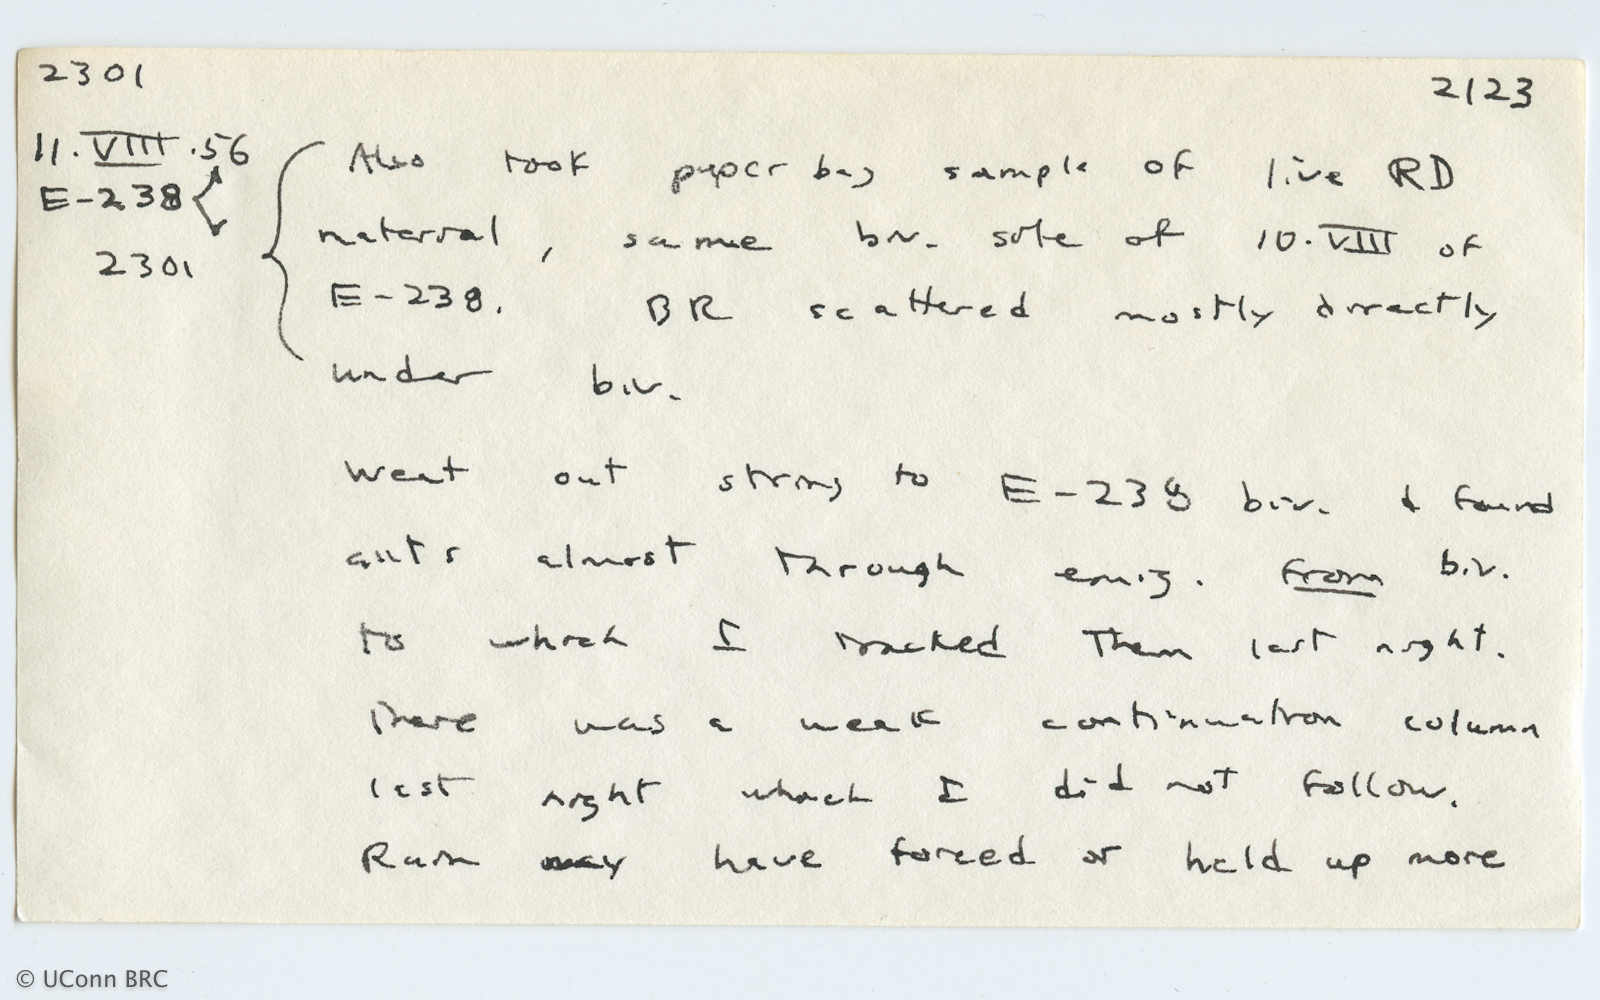 2301
2123
11.VIII.56
E-238
2301
Also took paper bag sample of live RD
material, same biv. site of 10.VIII of
E-238. BR scattered mostly directly
under biv.
Went out string to E-238 biv. & found
ants almost through emig. from biv.
to which I tracked them last night.
There was a weak continuation column
last night which I did not follow.
Rain may have forced or held up more
© UConn BRC